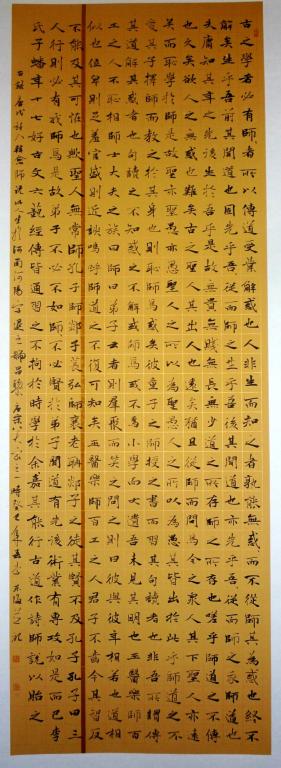 古之學者必有師師者所以傳道受業解惑也人非生而知之者孰能無惑惑而不從師其為惑也終不
解矣生乎吾前其聞道也固先乎吾吾從而師之生乎吾後其聞道也亦先乎吾吾從而師之吾師道也
夫庸知其年之先後生於吾乎是故無貴無賤無長無少道之所存師之所存也嗟乎師道之不傳
也久矣欲人之無惑也難矣古之聖人其出人也遠矣猶且從師而問焉今之衆人其下聖人亦遠
矣而恥學於師是故聖益聖愚益愚聖人之所以為聖愚人之所以為愚其皆出於此乎
愛其子擇師而教之於其身也則恥師焉惑矣彼童子之師授之書而習其句讀者也非吾所謂傳
其道解其惑者也句讀之不知惑之不解或師焉或不焉小學而大遺吾未見其明也巫醫樂師百
工之人不恥相師士大夫之族曰師曰弟子云者則群聚而笑之問之則曰彼與彼年相若也道相
似也位卑則足羞官盛則近諛嗚呼師道之不復可知矣巫醫樂師百工之人君子不齒今其智乃反
不能及其可怪也歟聖人無常師孔子師郯子萇弘師襄老聃郯子之徒其賢不及孔子孔子曰三
人行則必有我師焉是故弟子不必不如師師不必賢於弟子聞道有先後術業有專攻如是而已李
氏子蟠年十七好古文六藝經傳皆通習之不拘於時學於余余嘉其能行古道作師說以貽之
右錄唐代詩人韓愈師說